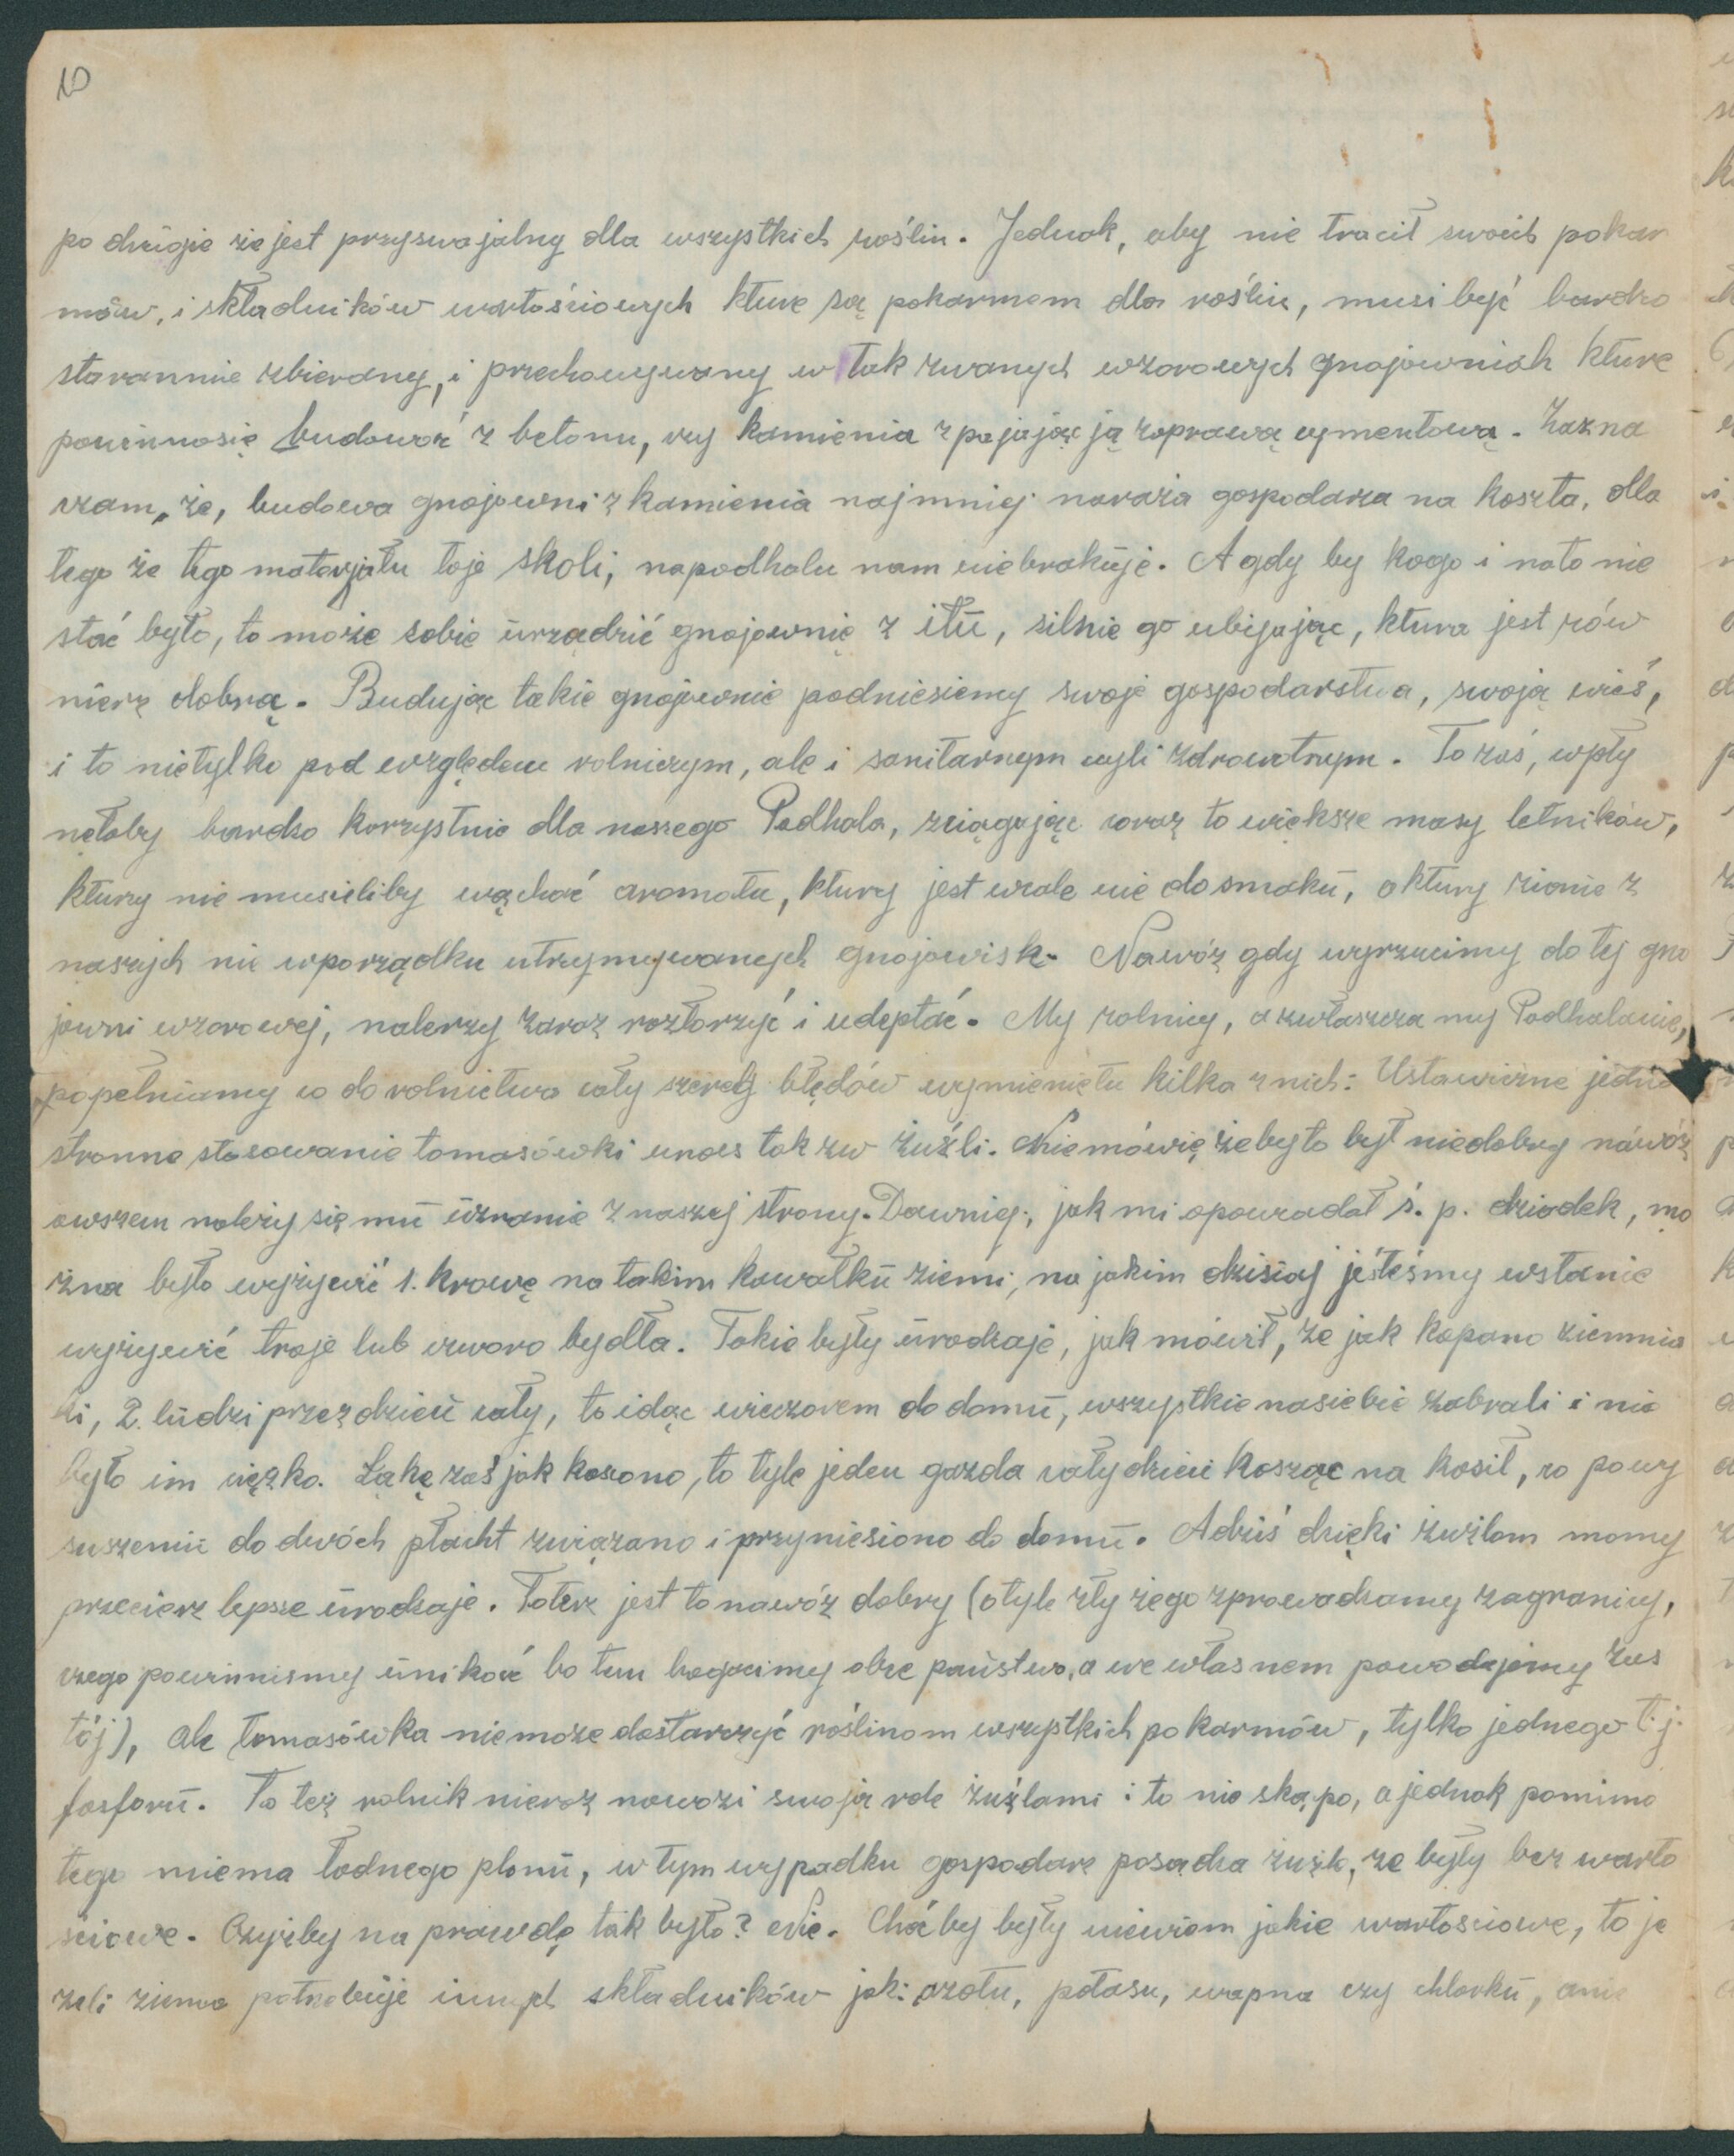 10
po drugie że jest przyswajalny dla wszystkich roślin. Jednak, aby nie tracił swoich pokar
mów, i składników wartościowych które są pokarmem dla roślin, musi być bardzo
starannie zbierany, i przechowywany w tak zwanych wzorowych gnojowniah kture
powinnosię budować z betonu, czy kamienia zpajając ją zaprawą cymentową. Zazna
czam, że, budowa gnojowni z kamienia najmniej naraża gospodarza na koszta, dla
tego że tego materjału toje skoli, napodhalu nam niebrakuje. A gdy by kogo i nato nie
stać było, to może sobie urządzić gnojownię z iłu, silnie go ubijając, ktura jest rów
nierz dobrą. Budując takie gnojownie podniesiemy swoje gospodarstwa, swoją wieś,
i to nietylko pod względem rolniczym, ale i sanitarnym czyli zdrowotnym. To zaś, wpły
nęłoby bardzo korzystnie dla naszego Podhala, zciągając coraz to większe masy letników,
ktury nie musieliby wąchać aromatu, ktury jest wcale nie do smaku, a ktury zionie z
naszych nie wporządku utrzymywanych gnojowisk. Nawóz gdy wyrzucimy do tej gno
jowni wzorowej, nalerzy zaraz rozłorzyć i udeptać. My rolnicy, a zwłaszcza my Podhalanie,
popełniamy co do rolnictwa cały szereg błędów wymienię tu kilka z nich: Ustawiczne jedno
stronne stosowanie tomasówki unas tak zw żużli. Nie mówię żeby to był niedobry nawóz
owszem należy się mu uznanie z naszej strony. Dawniej, jak mi opowiadał ś. p. dziadek, mo
żna było wyżywić 1. krowę na takim kawałku ziemi, na jakim dzisiaj jesteśmy wstanie
wyżywić troje lub czworo bydła. Takie były urodzaje, jak mówił, że jak kopano ziemnia
ki, 2. ludzi przez dzień cały, to idąc wieczorem do domu, wszystkie nasiebie zabrali i nie
było im ciężko. Łąkę zaś jak koszono, to tyle jeden gazda cały dzień kosząc na kosił, co powy
suszeniu do dwóch płacht związano i przyniesiono do domu. A dziś dzięki żużlom mamy
przecierz lepsze urodzaje. Toterz jest to nawóz dobry (otyle zły żego zprowadzamy zagranicy,
czego powinnismy unikać bo tem bogacimy obce państwo, a we własnem powodujemy zas
tój), ale tomasówka niemoże dostarczyć roślinom wszystkich pokarmów, tylko jednego t. j.
fosforu. To też rolnik nieraz nawozi swoją rolę żużlami i to nie skąpo, a jednak pomimo
tego niema ładnego plonu, w tym wypadku gospodarz posądza żużle, że były bez warto
ściowe. Czyżby na prawdę tak było? Nie. Chćby były niewiem jakie wartosciowe, to je
żeli ziemia potrzebuje innych składników jak: azotu, potasu, wapna czy chlorku, a nie